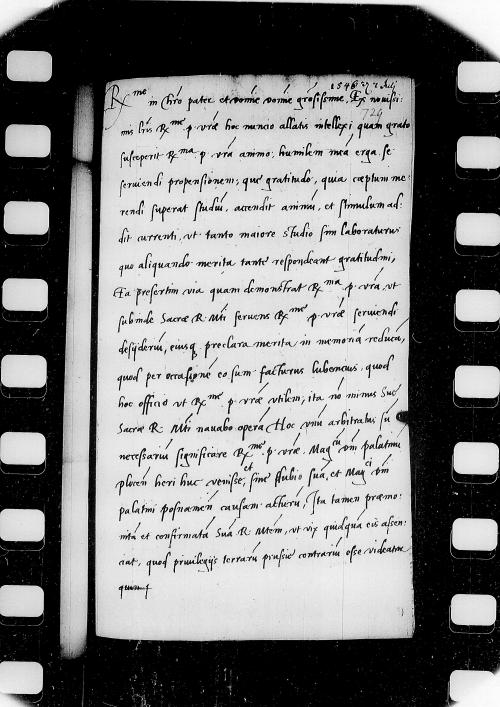 1546 27 Julij
R[me] in Chro pater et domine domine grosissime, Ex novissi:
729
mis lris R[me] p. vrae hoc nuncio allatis intellexi quam grato
susceperit R[ma] p. vra animo, humilem mea erga se
serviendi propensionem, quae gratitudo, quia coeptum me:
rendi superat studiu, accendit animu, et stimulum ad:
dit currenti, ut tanto maiore studio sim laboraturus
quo aliquando merita tante respondeant gratitudini,
Ea presertim via quam demonstrat R[ma] p. vra, ut
subinde Sacrae R. Mti serviens R[me] p. vrae serviendi
desyderiu, eiusq. preclara merita in memoria reduca,
quod per occasione eo sum facturus lubencius, quod
hoc officio ut R[me] p. vrae utilem, ita no minus Sue
Sacrae R. Mti navabo opera Hoc unu arbitratus su
necessariu significare R[me] p. vrae. Mag[cu] dm palatinu
plocen heri huc venisse, et sine dubio sua, et Mag[ci] dni
palatini posnanien causam acturu, Ita tamen praemo:
nita et confirmata Sua R. Mtem, ut vix quidqua eis assen:
ciat, quod privilegijs terraru prussie contrariu esse videatur